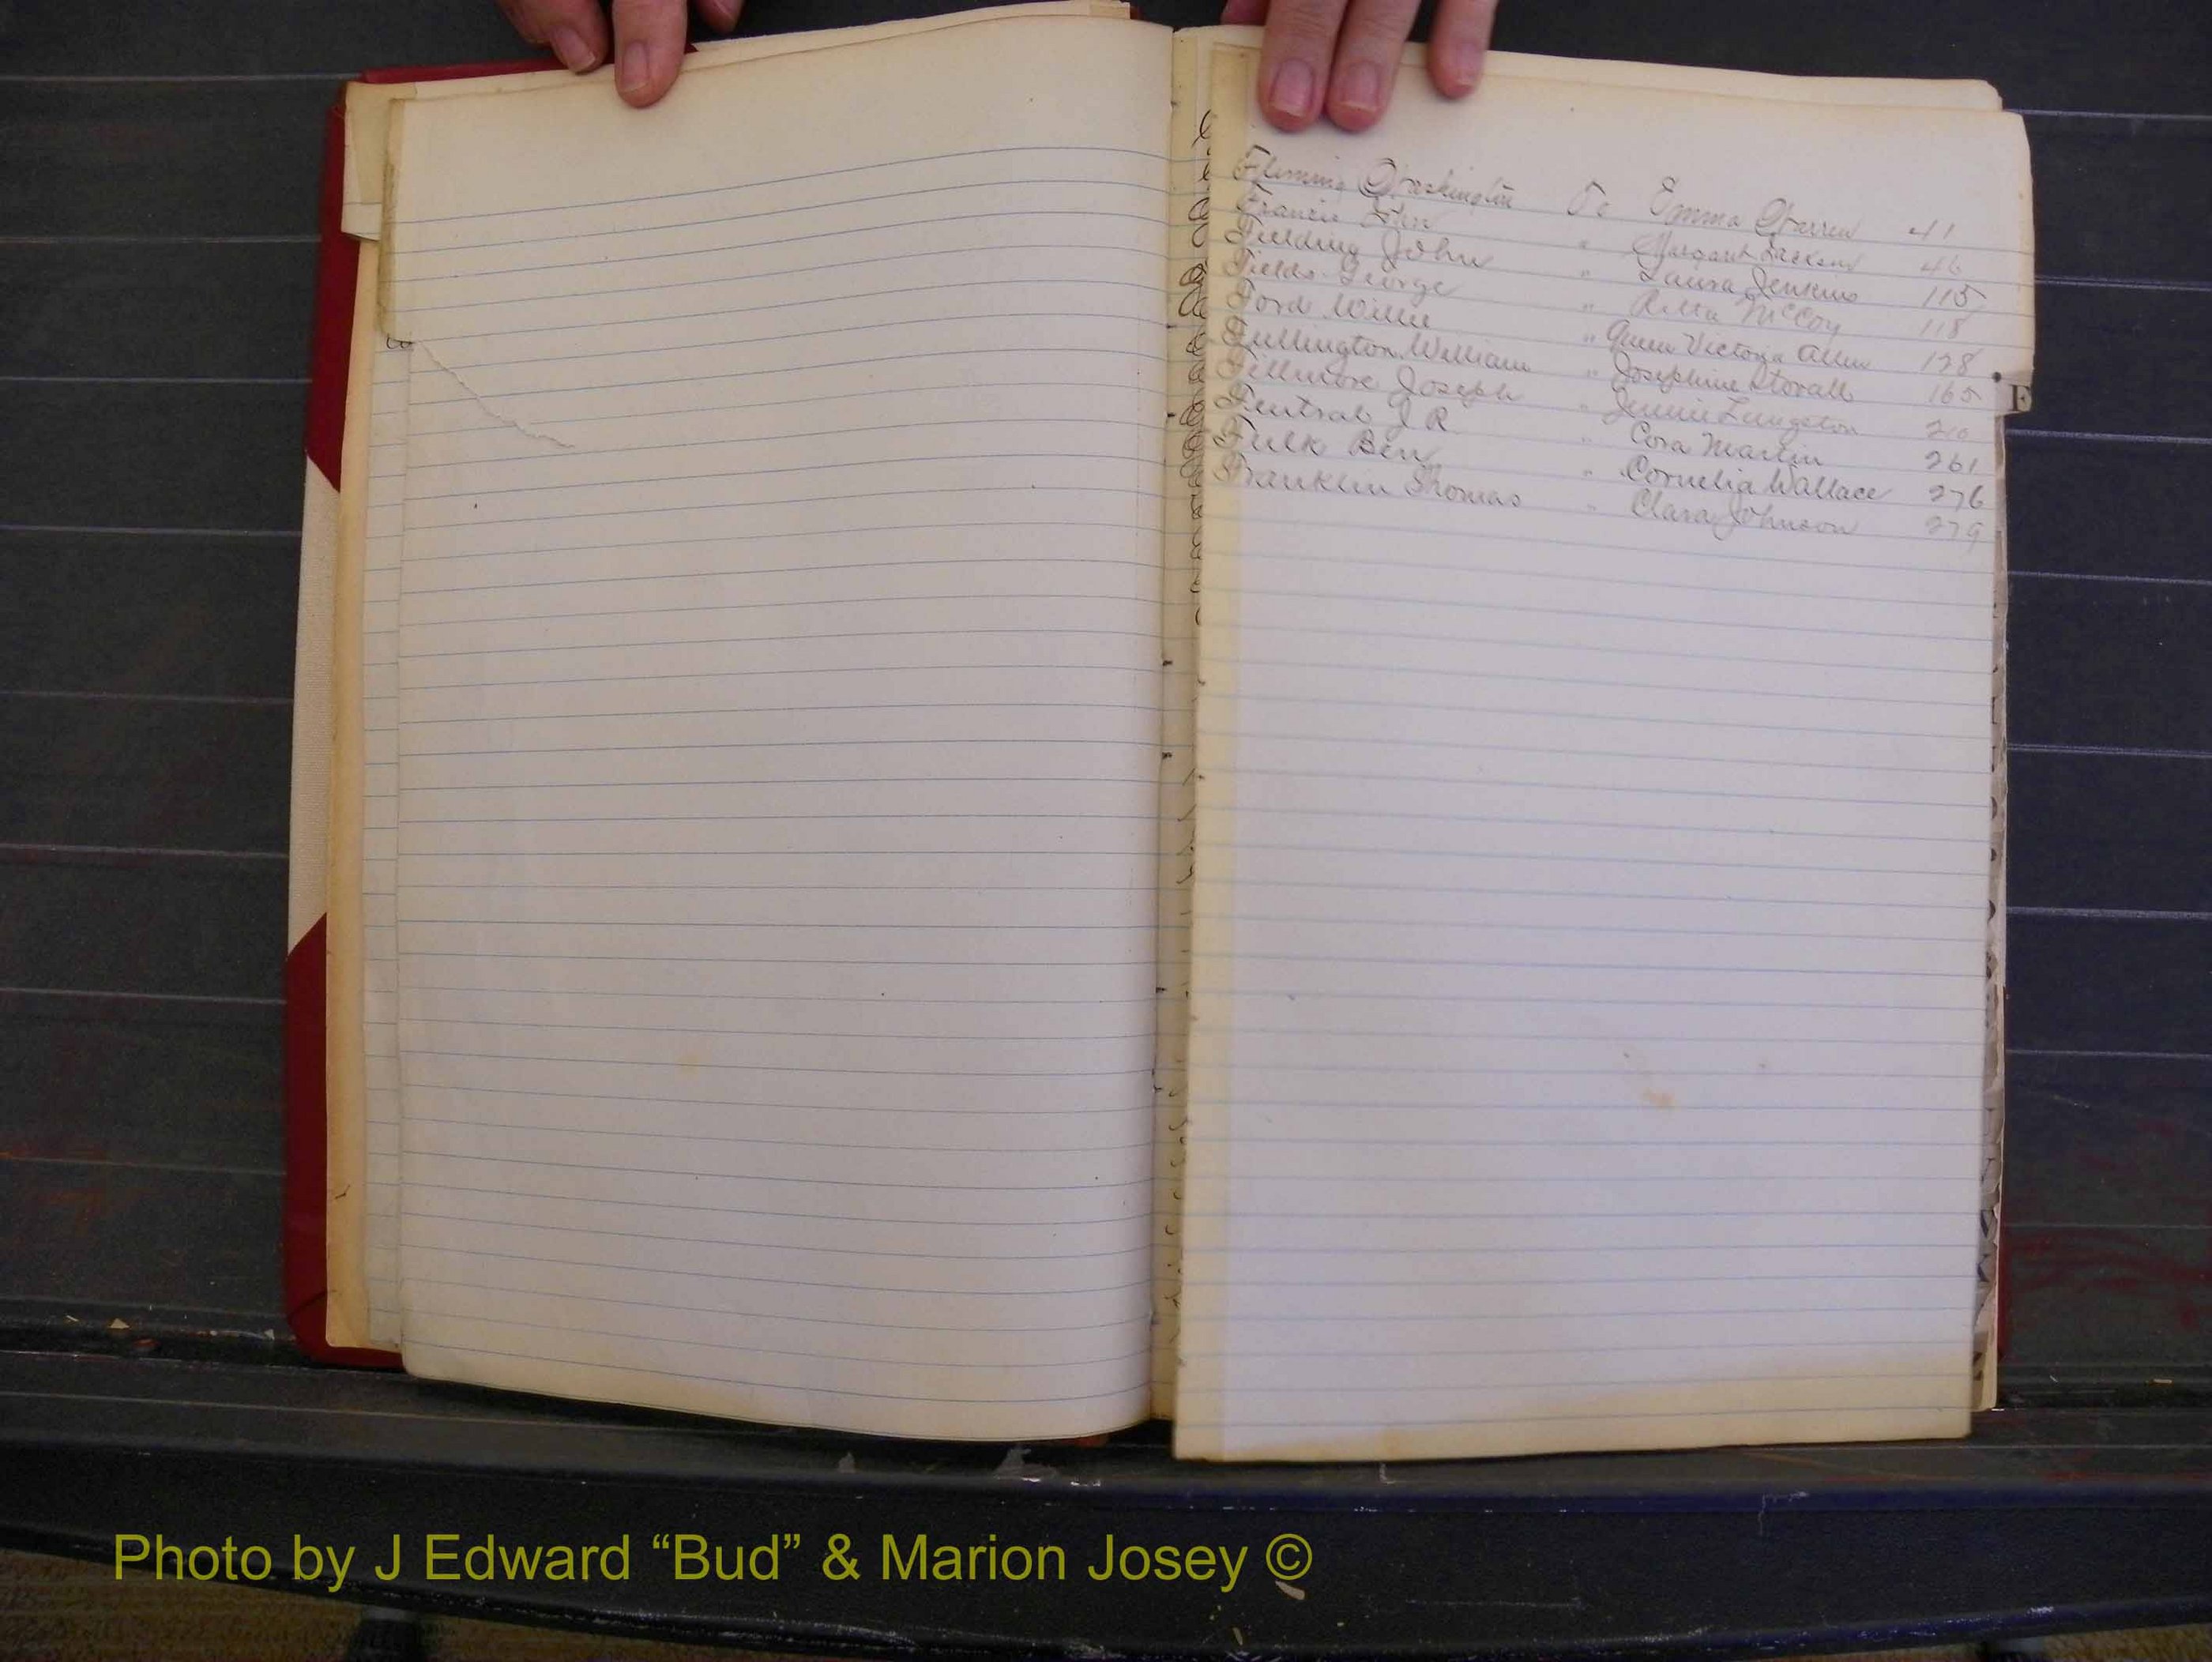 Fleming Washington To Emma Warren 41
Francis " Margaret Jackson 46
Fielding John " Laura Jenkins 115
Fields George " Retta McCoy 118
Ford Willie " Queen Victoria Allen 128
Fullington William " Josephine Stovall 165
Fillmore Joseph " Jennie Livingston 210
Fentral J R " Cora Martin 261
Fulk Ben " Cornelia Wallace 276
Franklin Thomas " Clara Johnson 279
F
Photo by J Edward “Bud” & Marion Josey ©